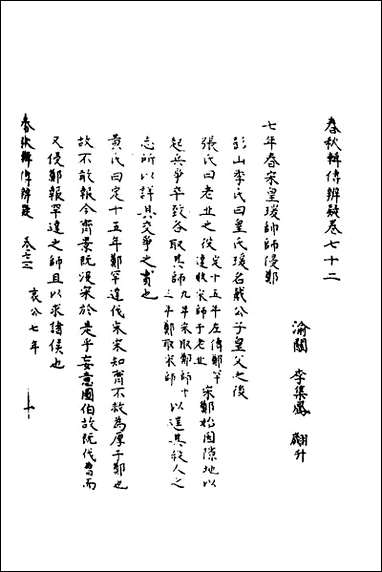 春秋輯傳辨疑卷七十二
渝關 李集鳳 翽升
七年春宋皇瑗帥師侵鄭
彭山李氏曰皇氏瑗名戴公子皇父之後
張氏曰老丘之役定十五年左傳鄭罕達敗宋師于老丘宋鄭始因隙地以
起兵爭卒致各取其師九年宋取鄭師十三年鄭取宋師以逞其殺人之
志所以詳其交爭之實也
黃氏曰定十五年鄭罕達伐宋宋知齊不敢為厚于鄭也
故不能報今齊景既沒宋於是乎妄意圖伯故既伐曹而
又侵鄭報罕達之師且以求諸侯也
春秋輯傳辨疑 卷七十二 哀公七年 一